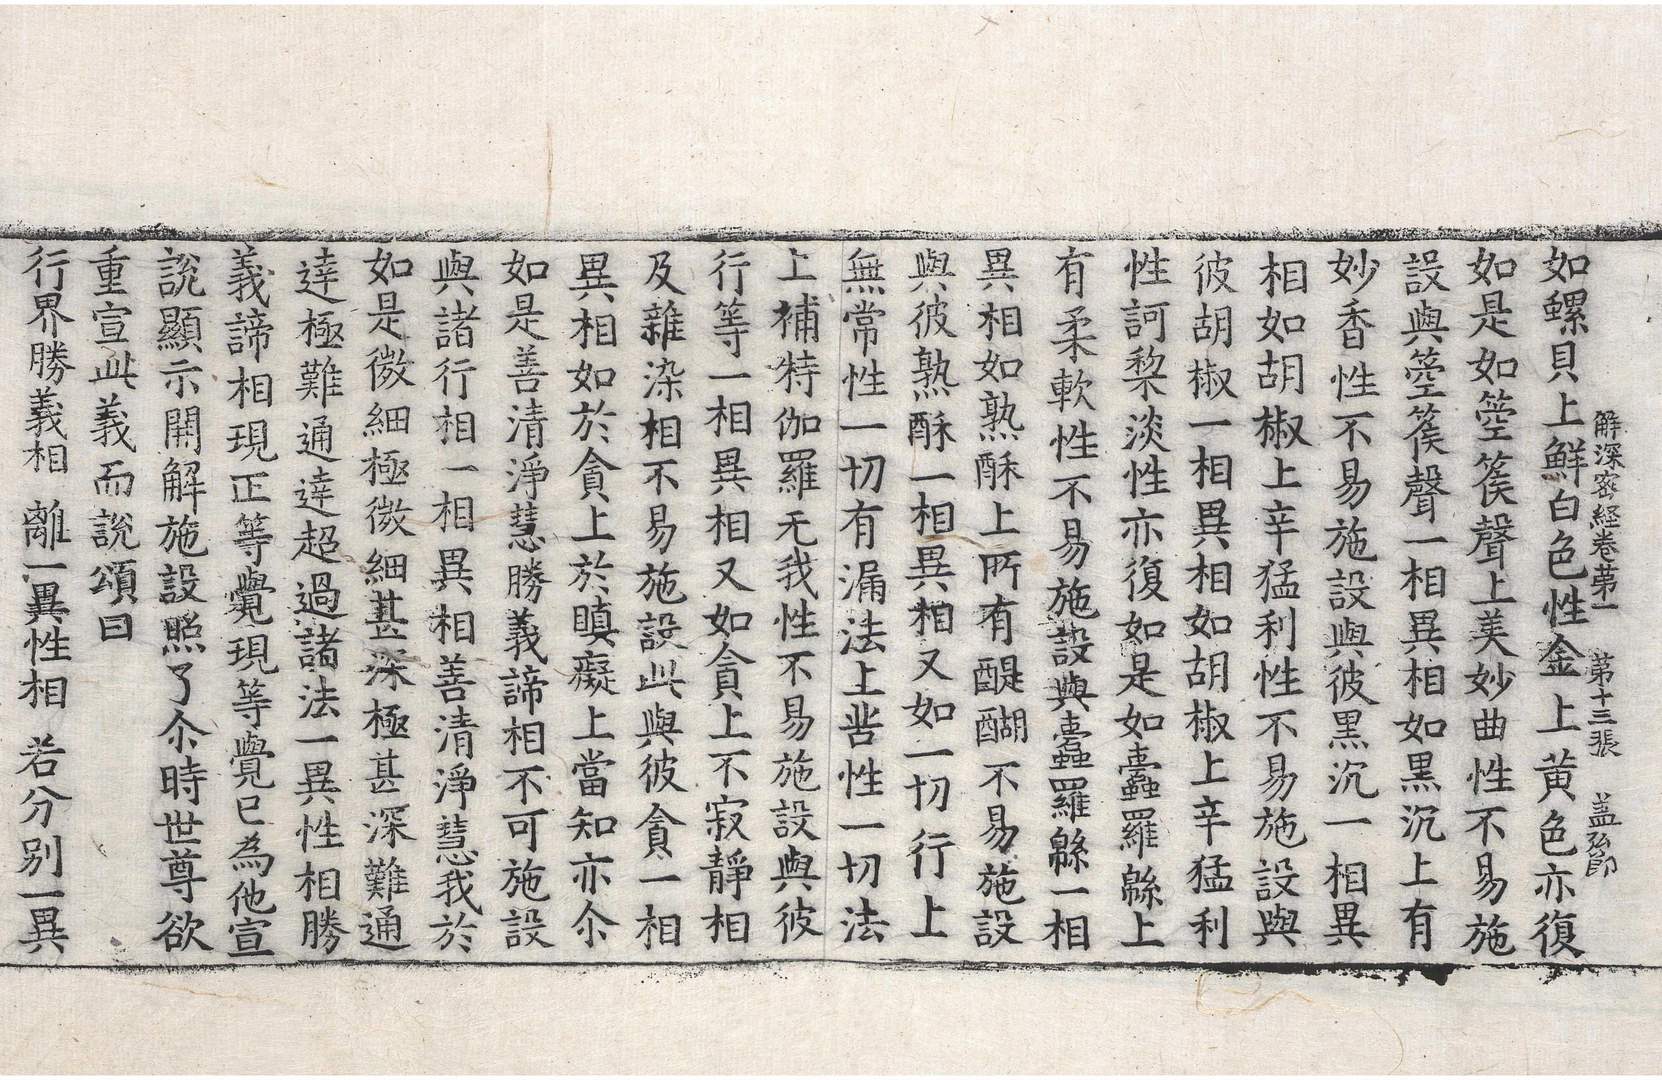 解深密経巻苐一　苐十三張　盖弘節
如螺貝上鮮白色性金上黄色亦復
如是如箜篌聲上美妙曲性不易施
設與箜篌聲一相異相如黒沉上有
妙香性不易施設與彼黒沉一相異
相如胡椒上辛猛利性不易施設與
彼胡椒一相異相如胡椒上辛猛利
性訶棃淡性亦復如是如蠹羅緜上
有柔軟性不易施設與蠹羅緜一相
異相如熟酥上所有醍醐不易施設
與彼熟酥一相異相又如一切行上
無常性一切有漏法上苦性一切法
上補特伽羅无我性不易施設與彼
行等一相異相又如貪上不寂靜相
及雜染相不易施設此與彼貪一相
異相如於貪上於瞋癡上當知亦尒
如是善清淨慧勝義諦相不可施設
與諸行相一相異相善清淨慧我於
如是微細極微細甚深極甚深難通
達極難通達超過諸法一異性相勝
義諦相現正等覺現等覺已為他宣
說顯示開解施設照了尒時世尊欲
重宣此義而說頌曰
行界勝義相　離一異性相　若分別一異